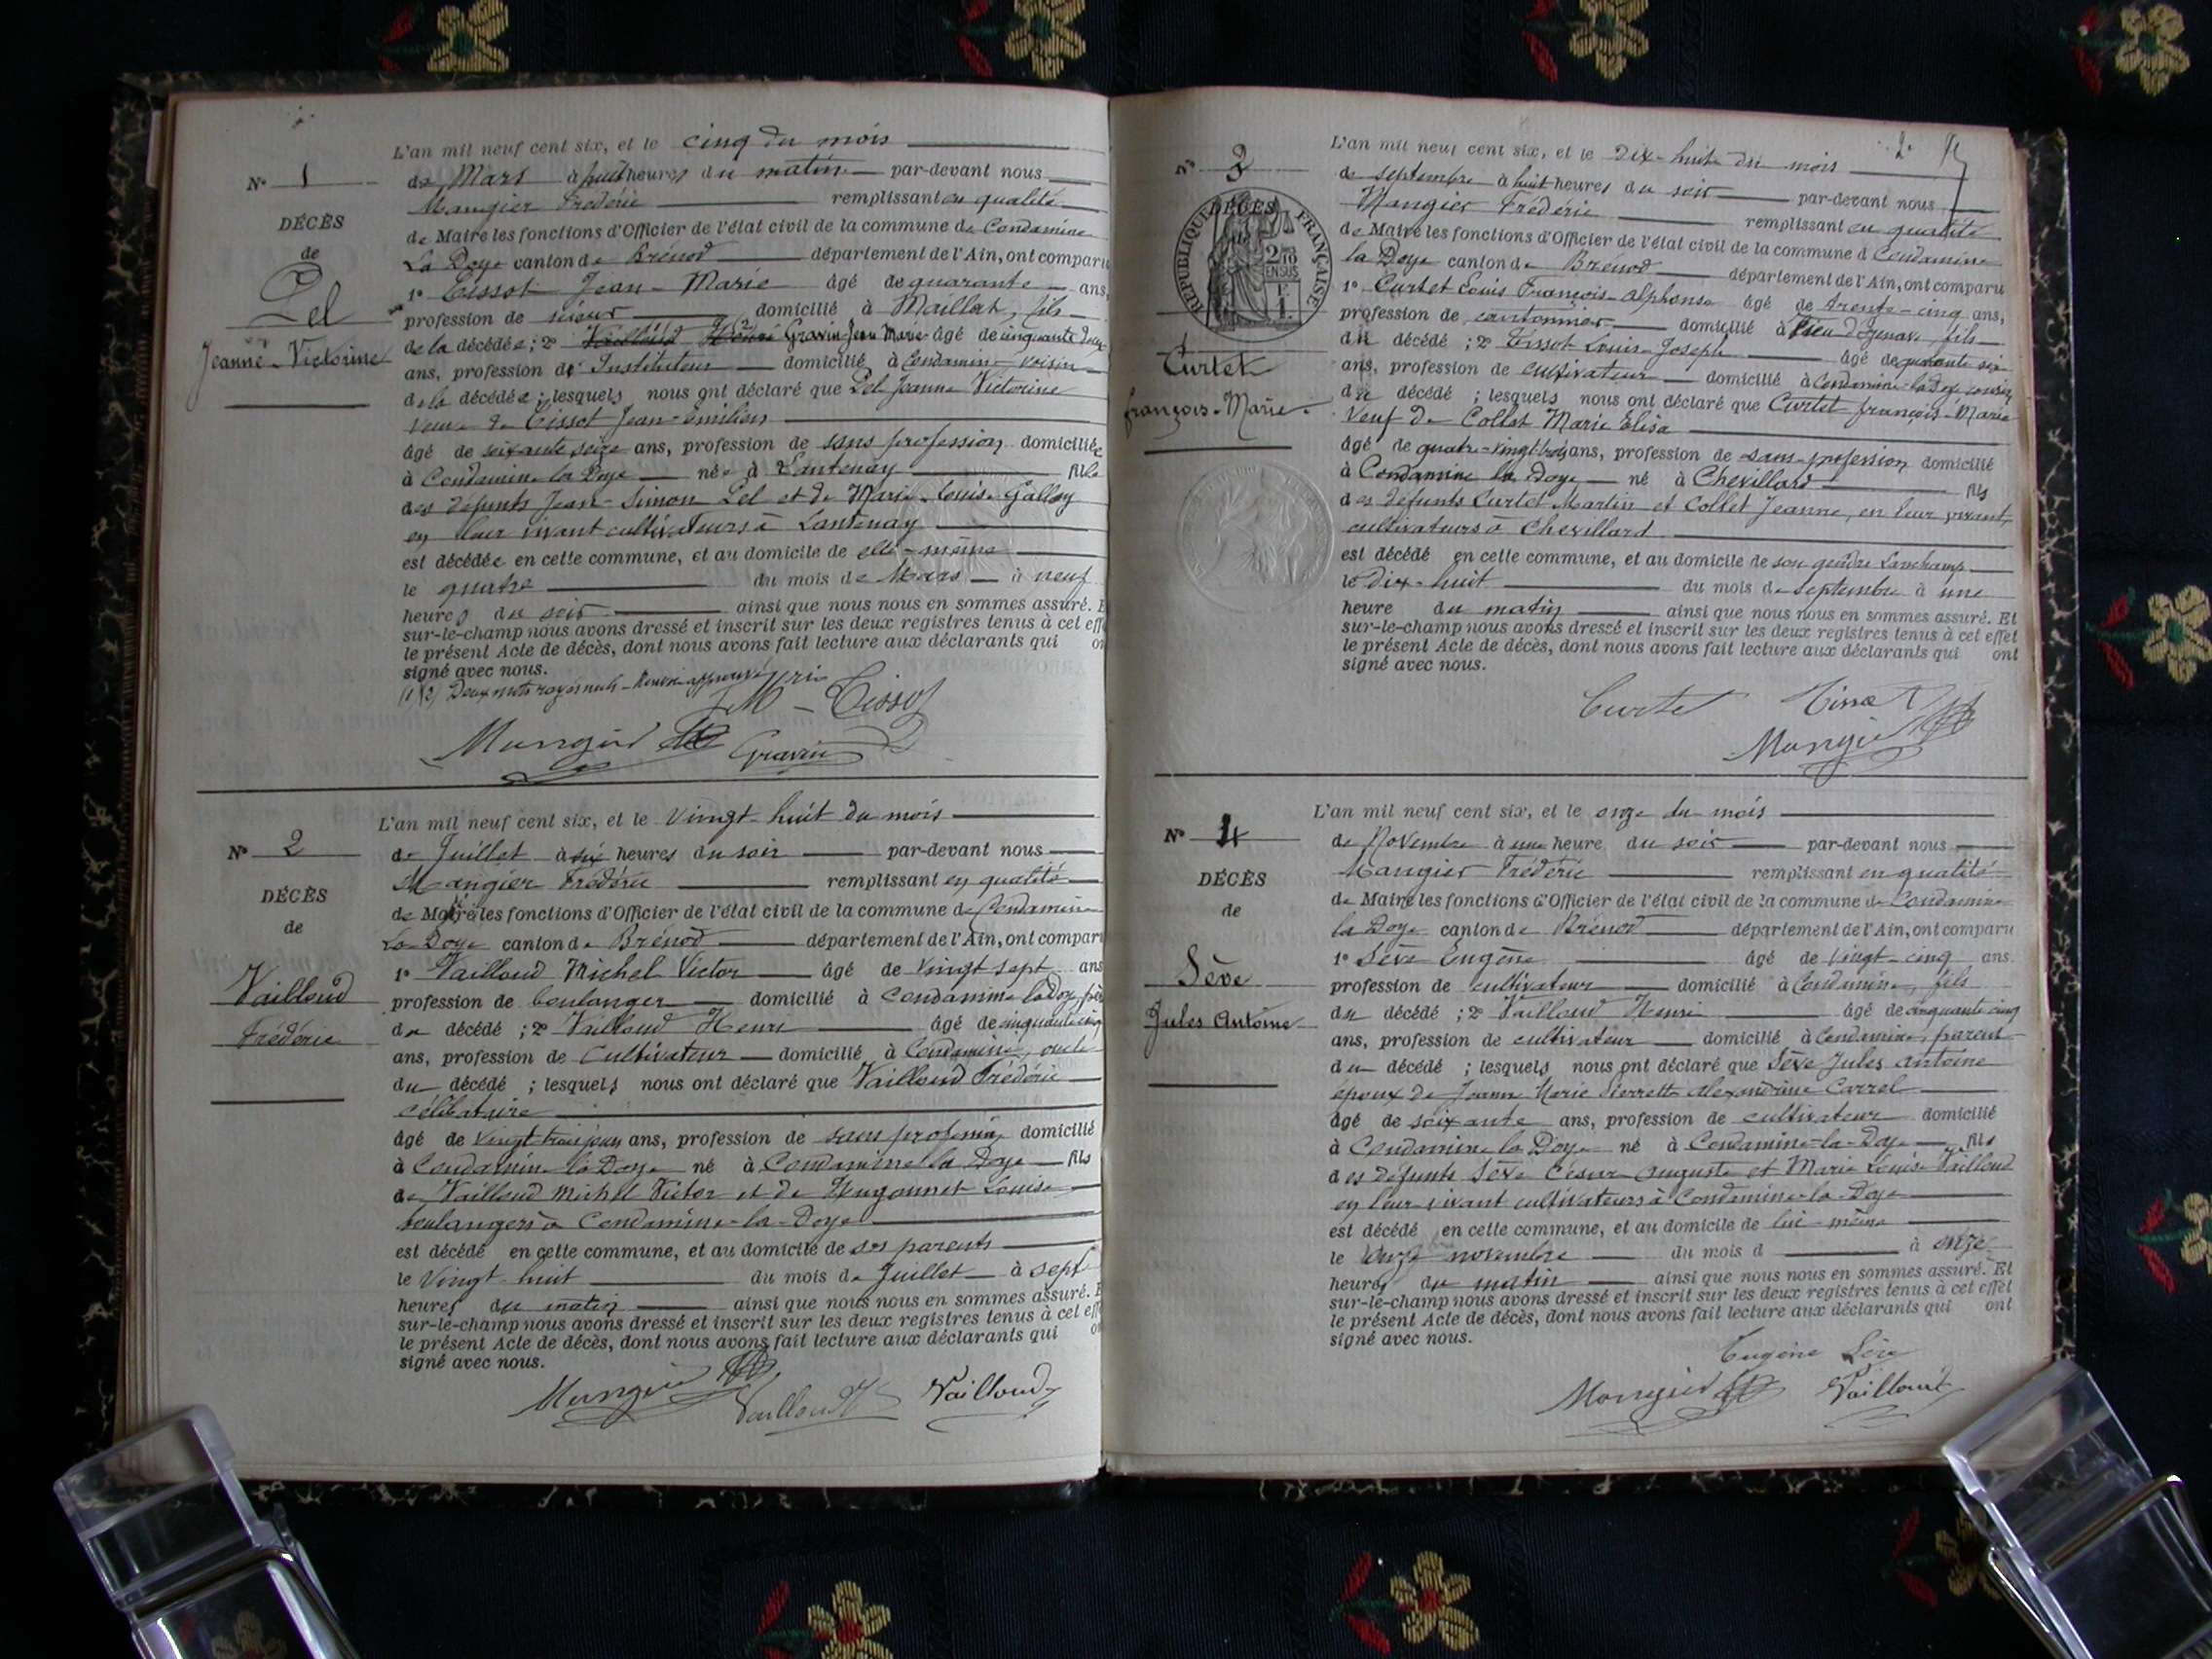 N° 1
DÉCÈS
de
Pel
Jeanne-Victorine
L'an mil neuf cent six, et le cinq du mois
de Mars à huit heures du matin par-devant nous
Mangier Frédéric remplissant en qualité
de Maire les fonctions d'Officier de l'état civil de la commune de Condamine
La Doye canton de Brénod département de l'Ain, ont comparu
1° Tissot Jean-Marie âgé de quarante ans,
profession de domicilié à Maillat, fils
de la décédée; 2° Vailloud Henri Gravin Jean Marie âgé de cinquante deux
ans, profession d' Instituteur domicilié à Condamine voisin
de la décédée; lesquels nous ont déclaré que Pel Jeanne Victorine
veuve de Tissot Jean-Emilien
âgé de soixante seize ans, profession de sans profession domiciliée
à Condamine la Doye née à Lantenay fille
des défunts Jean-Simon Pel et de Marie-Louise Gallay
en leur vivant cultivateurs à Lantenay
est décédée en cette commune, et au domicile de elle-même
le quatre du mois de Mars à neuf
heures du soir ainsi que nous nous en sommes assuré. E
sur-le-champ nous avons dressé et inscrit sur les deux registres tenus à cet eff
le présent Acte de décès, dont nous avons fait lecture aux déclarants qui on
signé avec nous.
(1)(2) Deux mots rayés nuls - Renvoi approuvé
JM Tissot
Mangier Gravin
N° 2
DÉCÈS
de
Vailloud
Frédéric
L'an mil neuf cent six, et le vingt-huit du mois
de Juillet à six heures du soir par-devant nous
Mangier Frédéric remplissant en qualité
de Maire les fonctions d'Officier de l'état civil de la commune de Condamine
La Doye canton de Brénod département de l'Ain, ont compar
1° Vailloud Michel Victor âgé de vingt sept ans
profession de boulanger domicilié à Condamine la Doye, père
du décédé; 2° Vailloud Henri âgé de cinquante cinq
ans, profession de cultivateur domicilié à Condamine, oncle
du décédé; lesquels nous ont déclaré que Vailloud Frédéric
célibataire
âgé de vingt-trois jours ans, profession de sans profession domicilié
à Condamine la Doye né à Condamine la Doye fils
de Vailloud Michel Victor et de Hugonnet Louise
boulangers à Condamine-la-Doye
est décédé en cette commune, et au domicile de ses parents
le vingt huit du mois de Juillet à sept
heures du matin ainsi que nous nous en sommes assuré. E
sur-le-champ nous avons dressé et inscrit sur les deux registres tenus à cet eff
le présent Acte de décès, dont nous avons fait lecture aux déclarants qui on
signé avec nous.
Mangier Vailloud H Vailloud
2
N° 3
DÉCÈS
RÉPUBLIQUE FRANÇAISE
2/10
EN SUS
Curtet
François-Marie
L'an mil neuf cent six, et le dix-huit du mois
de septembre à huit heures du soir par-devant nous
Mangier Frédéric remplissant en qualité
de Maire les fonctions d'Officier de l'état civil de la commune d Condamine
la Doye canton de Brénod département de l'Ain, ont comparu
1° Curtet Louis François-Alphonse âgé de trente-cinq ans,
profession de cantonnier domicilié à fils
du décédé; 2° Tissot Louis-Joseph âgé de quarante six
ans, profession de cultivateur domicilié à Condamine-la-Doye cousin
du décédé; lesquels nous ont déclaré que Curtet François-Marie
veuf de Collet Marie Elisa
âgé de quatre-vingt-trois ans, profession de sans-profession domicilié
à Condamine la Doye né à Chevillard fils
des défunts Curtet Martin et Collet Jeanne, en leur vivant,
cultivateurs à Chevillard
est décédé en cette commune, et au domicile de son gendre Lanchamp
le dix-huit du mois de septembre à une
heure du matin ainsi que nous nous en sommes assuré. Et
sur-le-champ nous avons dressé et inscrit sur les deux registres tenus à cet effet
le présent Acte de décès, dont nous avons fait lecture aux déclarants qui ont
signé avec nous.
Curtet Tissot
Mangier
N° 4
DÉCÈS
de
Sève
Jules Antoine
L'an mil neuf cent six, et le onze du mois
de Novembre à une heure du soir par-devant nous
Mangier Frédéric remplissant en qualité
de Maire les fonctions d'Officier de l'état civil de la commune de Condamine
la Doye canton de Brénod département de l'Ain, ont comparu
1° Sève Eugène âgé de vingt-cinq ans.
profession de cultivateur domicilié à Condamine, fils
du décédé; 2° Vailloud Henri âgé de cinquante cinq
ans, profession de cultivateur domicilié à Condamine, parent
du décédé; lesquels nous ont déclaré que Sève Jules Antoine
époux de Jeanne Marie Pierrette Alexandrine Carrel
âgé de soixante ans, profession de cultivateur domicilié
à Condamine la Doye né à Condamine-la-Doye fils
des défunts Sève César Auguste et Marie Louise Vailloud
en leur vivant cultivateurs à Condamine-la-Doye
est décédé en cette commune, et au domicile de lui-même
le onze novembre du mois d à onze
heures du matin ainsi que nous nous en sommes assuré. Et
sur-le-champ nous avons dressé et inscrit sur les deux registres tenus à cet effet
le présent Acte de décès, dont nous avons fait lecture aux déclarants qui ont
signé avec nous.
Eugène Sève
Mangier Vailloud